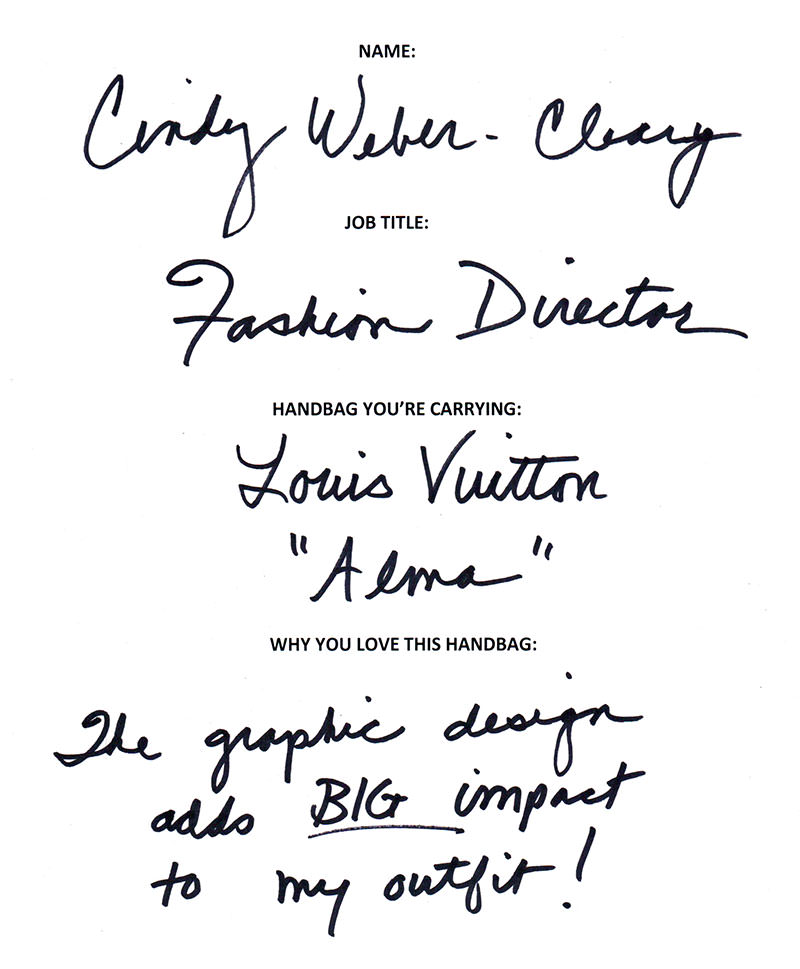 NAME:
Cindy Weber-Cleary
JOB TITLE:
Fashion Director
HANDBAG YOU'RE CARRYING:
Louis Vuitton
"Alma"
WHY YOU LOVE THIS HANDBAG:
The graphic design
adds BIG impact
to my outfit!